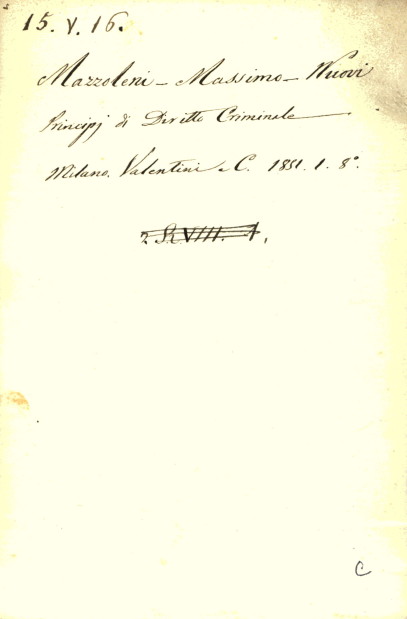 15. V. 16.
Mazzoleni - Massimo - Nuovi
Principj di Diritto Criminale
Milano. Valentini e C. 1851. 1. 8°.
VIII. 1.
C